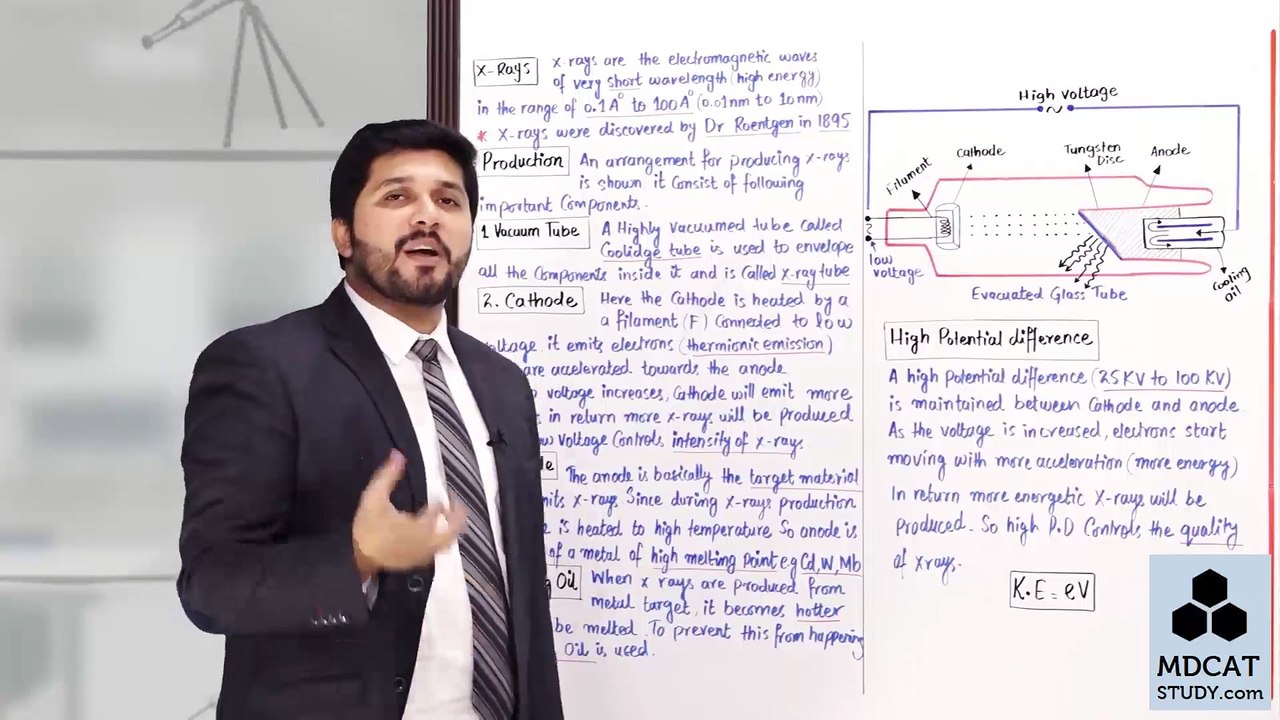 X-Rays
x-rays are the electromagnetic waves
of very short wavelength (high energy)
in the range of 0.1A° to 100A° (0.01nm to 10nm)
* X-rays were discovered by Dr Roentgen in 1895
Production
An arrangement for producing x-rays
is shown it Consist of following
important Components..
1. Vacuum Tube
A Highly vacuumed tube called
Coolidge tube is used to envelope
all the Components inside it and is Called x-ray tube
2. Cathode
Here the Cathode is heated by a
a filament (F) Connected to low
voltage it emits electrons (thermionic emission)
are accelerated towards the anode
voltage increases, Cathode will emit more
in return more x-rays will be produced
voltage Controls intensity of x-rays.
The anode is basically the target material
x-rays Since during x-rays production
is heated to high temperature So anode is
of a metal of high melting point e.g Cd, W, Mb
Oil
When x rays are produced from
metal target, it becomes hotter
be melted. To prevent this from happening
Oil is used.
High Voltage
Filament
Cathode
Tungsten
Disc
Anode
low
voltage
Cooling
Oil
Evacuated Glass Tube
High Potential difference
A high Potential difference (25KV to 100 KV)
is maintained between Cathode and anode.
As the voltage is increased, electrons start
moving with more acceleration (more energy)
In return more energetic X-rays will be
Produced. So high P.D Controls the quality
of x rays.
K.E = eV
MDCAT
STUDY.com